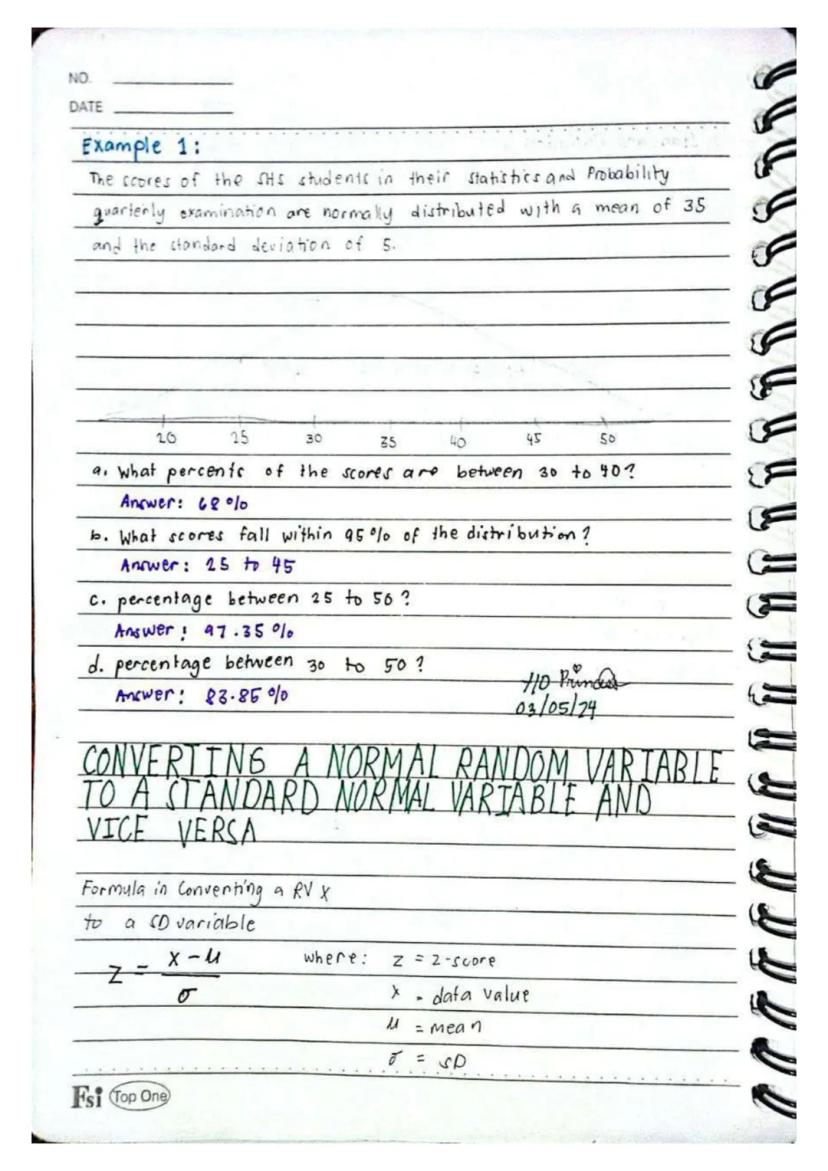 NO.
DATE
Example 1:
The scores of the SHS students in their Statistics and Probability
quarterly examination are normally distributed with a mean of 35
and the standard deviation of 5.
20 25 30 35 40 45 50
a. What percents of the scores are between 30 to 40?
Answer: 68%
b. What scores fall within 95% of the distribution?
Answer: 25 to 45
c. percentage between 25 to 50?
Answer: 97.35%
d. percentage between 30 to 50?
Answer: 83.85%
03/05/24
CONVERTING A NORMAL RANDOM VARIABLE
TO A STANDARD NORMAL VARIABLE AND
VICE VERSA
Formula in Converting a RV X
to a SD variable
Z = X - μ / σ
where: Z = Z-score
X = data value
μ = mean
σ = SD
Fsi Top One